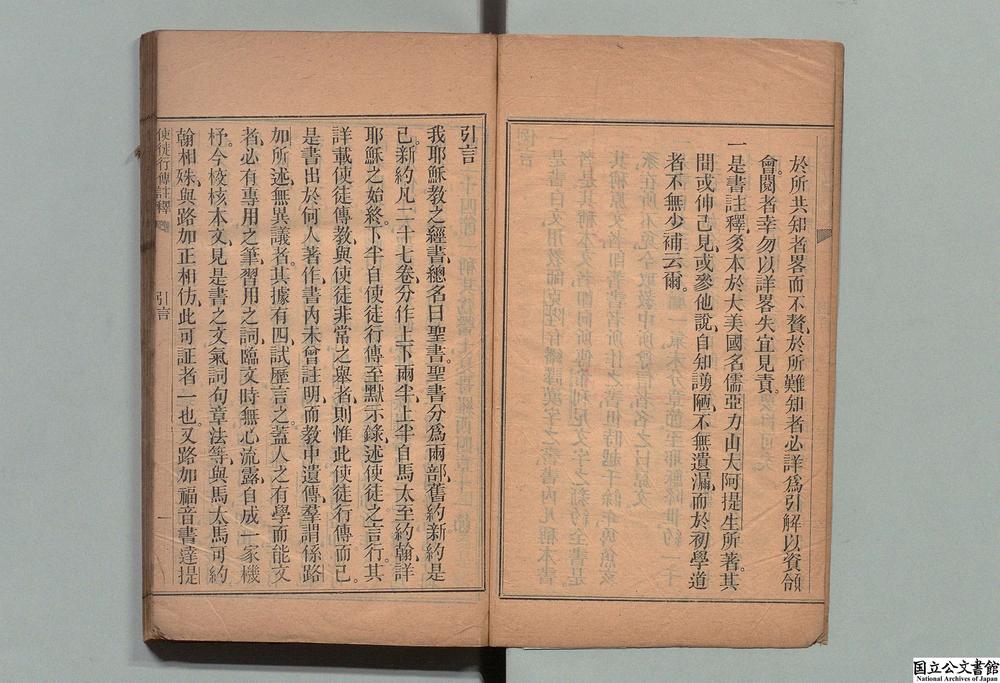 於所共知者畧而不贅、於所難知者必詳爲引解以資領
會閱者幸勿以詳畧失宜見責。
一是書註釋多本於大美國名儒亞力山大阿提生所著。其
間或伸己見、或參他說、自知謭陋、不無遺漏、而於初學道
者不無少補云爾。
引言
我耶穌教之經書、總名曰聖書。聖書分爲兩部、舊約新約是
已。新約凡二十七卷、分作上下兩半、上半自馬太至約翰、詳
耶穌之始終。下半自使徒行傳至默示錄、述使徒之言行。其
詳載使徒傳教、與使徒非常之舉者、則惟此使徒行傳而已。
是書出於何人著作、書內未曾註明、而教中遺傳、羣謂係路
加所述、無異議者。其據有四、試歷言之。蓋人之有學而能文
者、必有專用之筆、習用之詞、臨文時無心流露、自成一家機
杼。今檢核本文、見是書之文氣詞句章法等、與馬太馬可約
翰相殊、與路加正相仿、此可証者一也。又路加福音書達提
使徒行傳註釋 引言 一
国立公文書館
National Archives of Japan